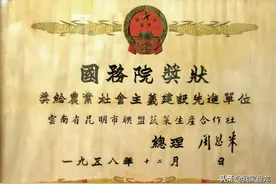 國務院獎狀
獎給農業社會主義建設先進單位
雲南省昆明市聯盟蔬菜生產合作社
總理 周恩來
一九五八年十二月 日
头条 @我家昆78